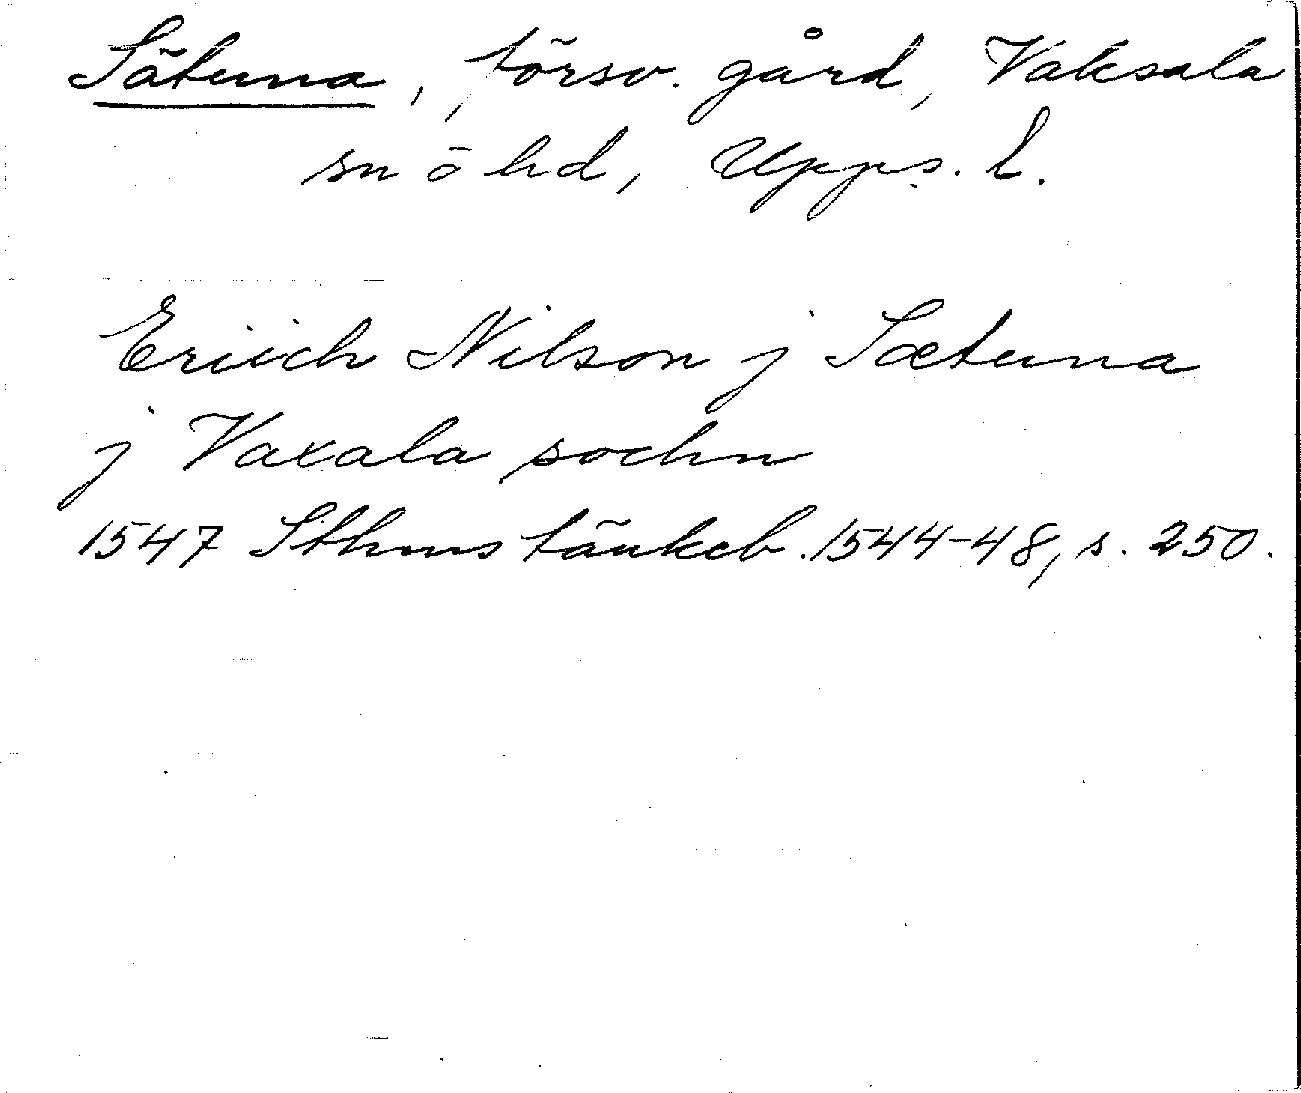 Sätuna, försv. gård, Vaksala
sn o hd, Upps. l.
Eriich Nilson j Sætuna
j Vaxala sochn
1547 Sthms tänkeb. 1544-48, s. 250.